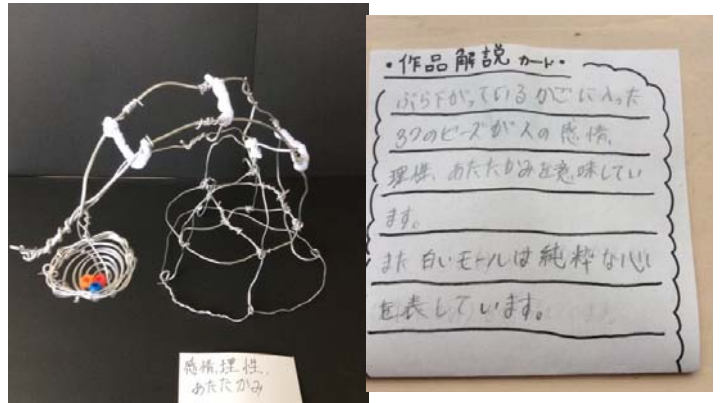 感情、理性、
あたたかみ
・作品解説カード・
ぶら下がっているかごに入った
3つのビーズが人の感情、
理性、あたたかみを意味してい
ます。
また白いモールは純粋な心
を表しています。